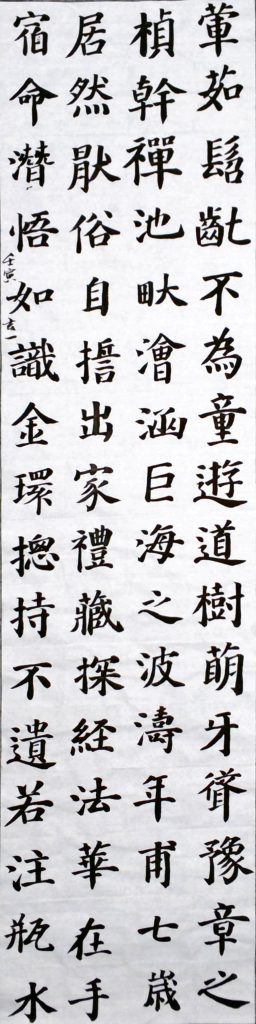 葷茹髫齔不為童遊道樹萌牙聳豫章之
楨幹禪池畎澮涵巨海之波濤年甫七歲
居然猒俗自誓出家禮藏探経法華在手
宿命潛悟如識金環摠持不遺若注瓶水
壬寅